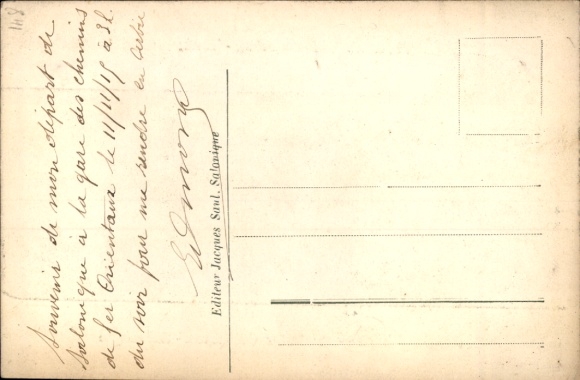 148
Souvenir de mon départ de
Salonique à la gare des chemins
de fer Orientaux le 11/11/15 à 3 h.
du soir pour me rendre en Serbie
Editeur Jacques Saul, Salonique